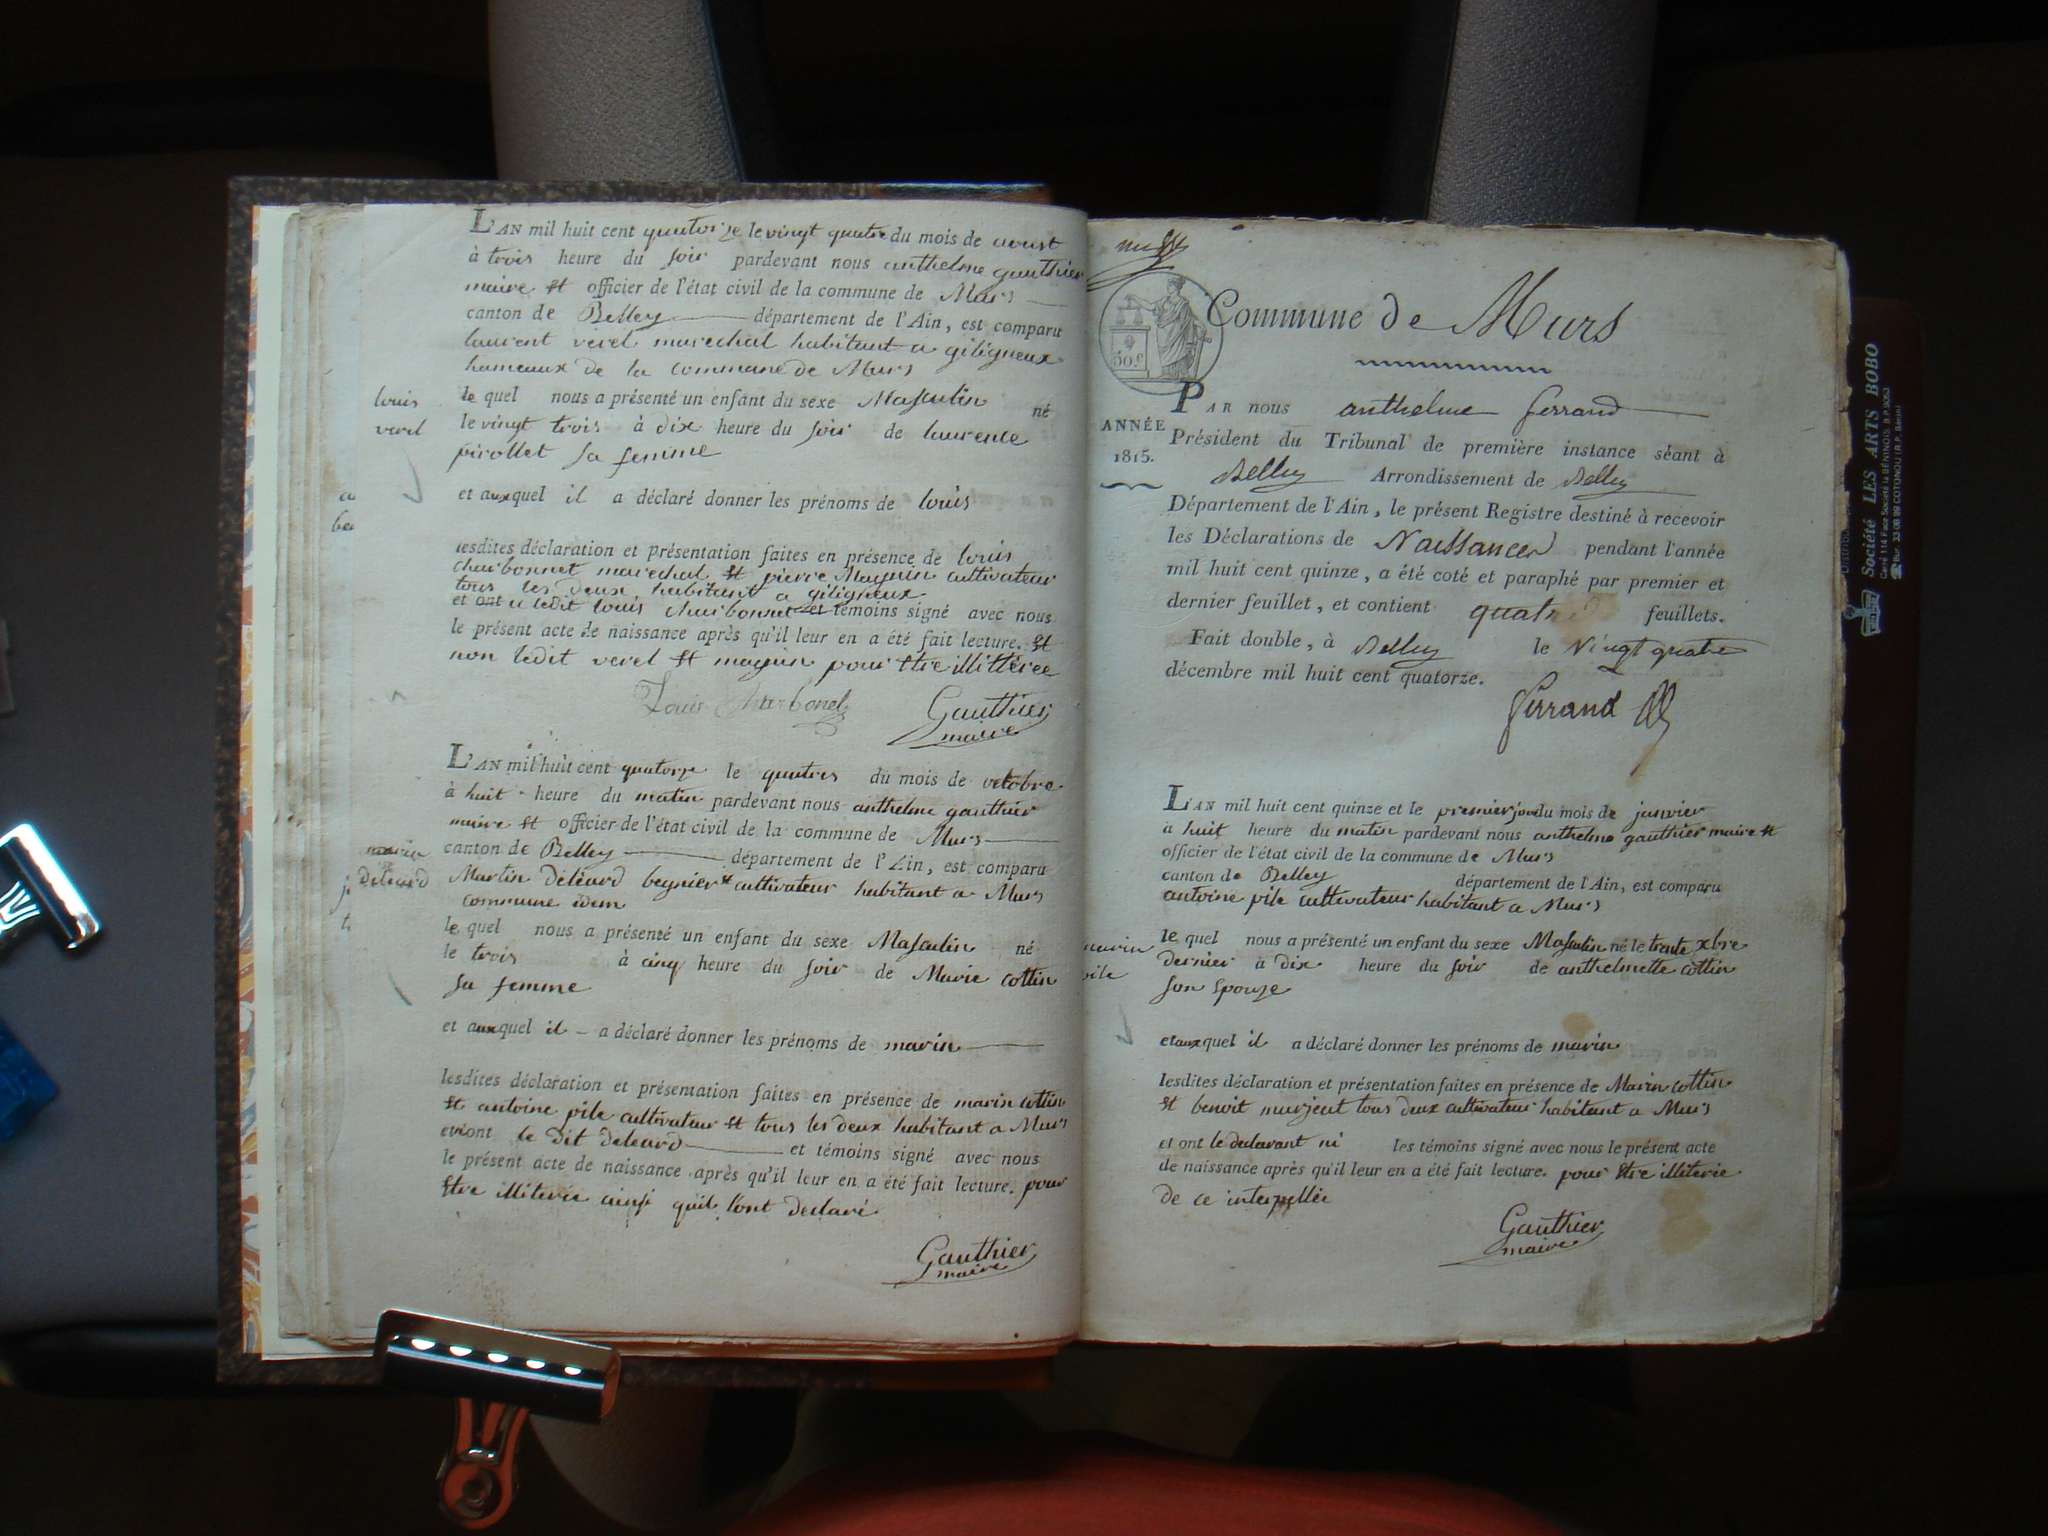 L'AN mil huit cent quatorze le vingt quatre du mois de aoust
à trois heure du soir pardevant nous anthelme gauthier
maire et officier de l'état civil de la commune de Murs
canton de Belley département de l'Ain, est comparu
laurent verel marechal habitant a giligneux
hameaux de la commune de Murs
louis
verel
le quel nous a présenté un enfant du sexe Masculin né
le vingt trois à dix heure du soir de laurence
pirollet sa femme
et auxquel il a déclaré donner les prénoms de louis
lesdites déclaration et présentation faites en présence de louis
charbonnet marechal et pierre Magnin cultivateur
tous les deux habitant a giligneux
et ont ledit louis charbonnet et témoins signé avec nous
le présent acte de naissance après qu'il leur en a été fait lecture. et
non ledit verel et magnin pour être illitéree
Louis Charbonel
Gauthier
maire
L'AN mil huit cent quatorze le quatres du mois de octobre
à huit heure du matin pardevant nous anthelme gauthier
maire et officier de l'état civil de la commune de Murs
canton de Belley département de l'Ain, est comparu
marin
deléard
Martin deléard beynier et cultivateur habitant a Murs
commune idem
le quel nous a présenté un enfant du sexe Masculin né
le trois à cinq heure du soir de Marie cottin
sa femme
et auxquel il a déclaré donner les prénoms de marin
lesdites déclaration et présentation faites en présence de marin cottin
et antoine pile cultivateur et tous les deux habitant a Murs
et ont le dit deleard et témoins signé avec nous
le présent acte de naissance après qu'il leur en a été fait lecture. pour
être illiterée ainsi quils l'ont declaré
Gauthier
maire
Commune de Murs
50.c
ANNÉE
1815.
PAR nous anthelme ferrand
Président du Tribunal de première instance séant à
Belley Arrondissement de Belley
Département de l'Ain, le présent Registre destiné à recevoir
les Déclarations de Naissances pendant l'année
mil huit cent quinze, a été coté et paraphé par premier et
dernier feuillet, et contient quatre feuillets.
Fait double, à Belley le Vingt quatre
décembre mil huit cent quatorze.
ferrand
L'AN mil huit cent quinze et le premier jour du mois de janvier
à huit heure du matin pardevant nous anthelme gauthier maire et
officier de l'état civil de la commune de Murs
canton de Belley département de l'Ain, est comparu
antoine pile cultivateur habitant a Murs
marin
pile
le quel nous a présenté un enfant du sexe Masculin né le trente xbre
dernier à dix heure du soir de anthelmette cottin
son epouze
et auxquel il a déclaré donner les prénoms de marin
lesdites déclaration et présentation faites en présence de Marin cottin
et benoit murjeut tous deux cultivateur habitant a Murs
et ont le declarant ni les témoins signé avec nous le présent acte
de naissance après qu'il leur en a été fait lecture. pour être illiterée
de ce interpellée
Gauthier
maire
Société LES ARTS BOBO